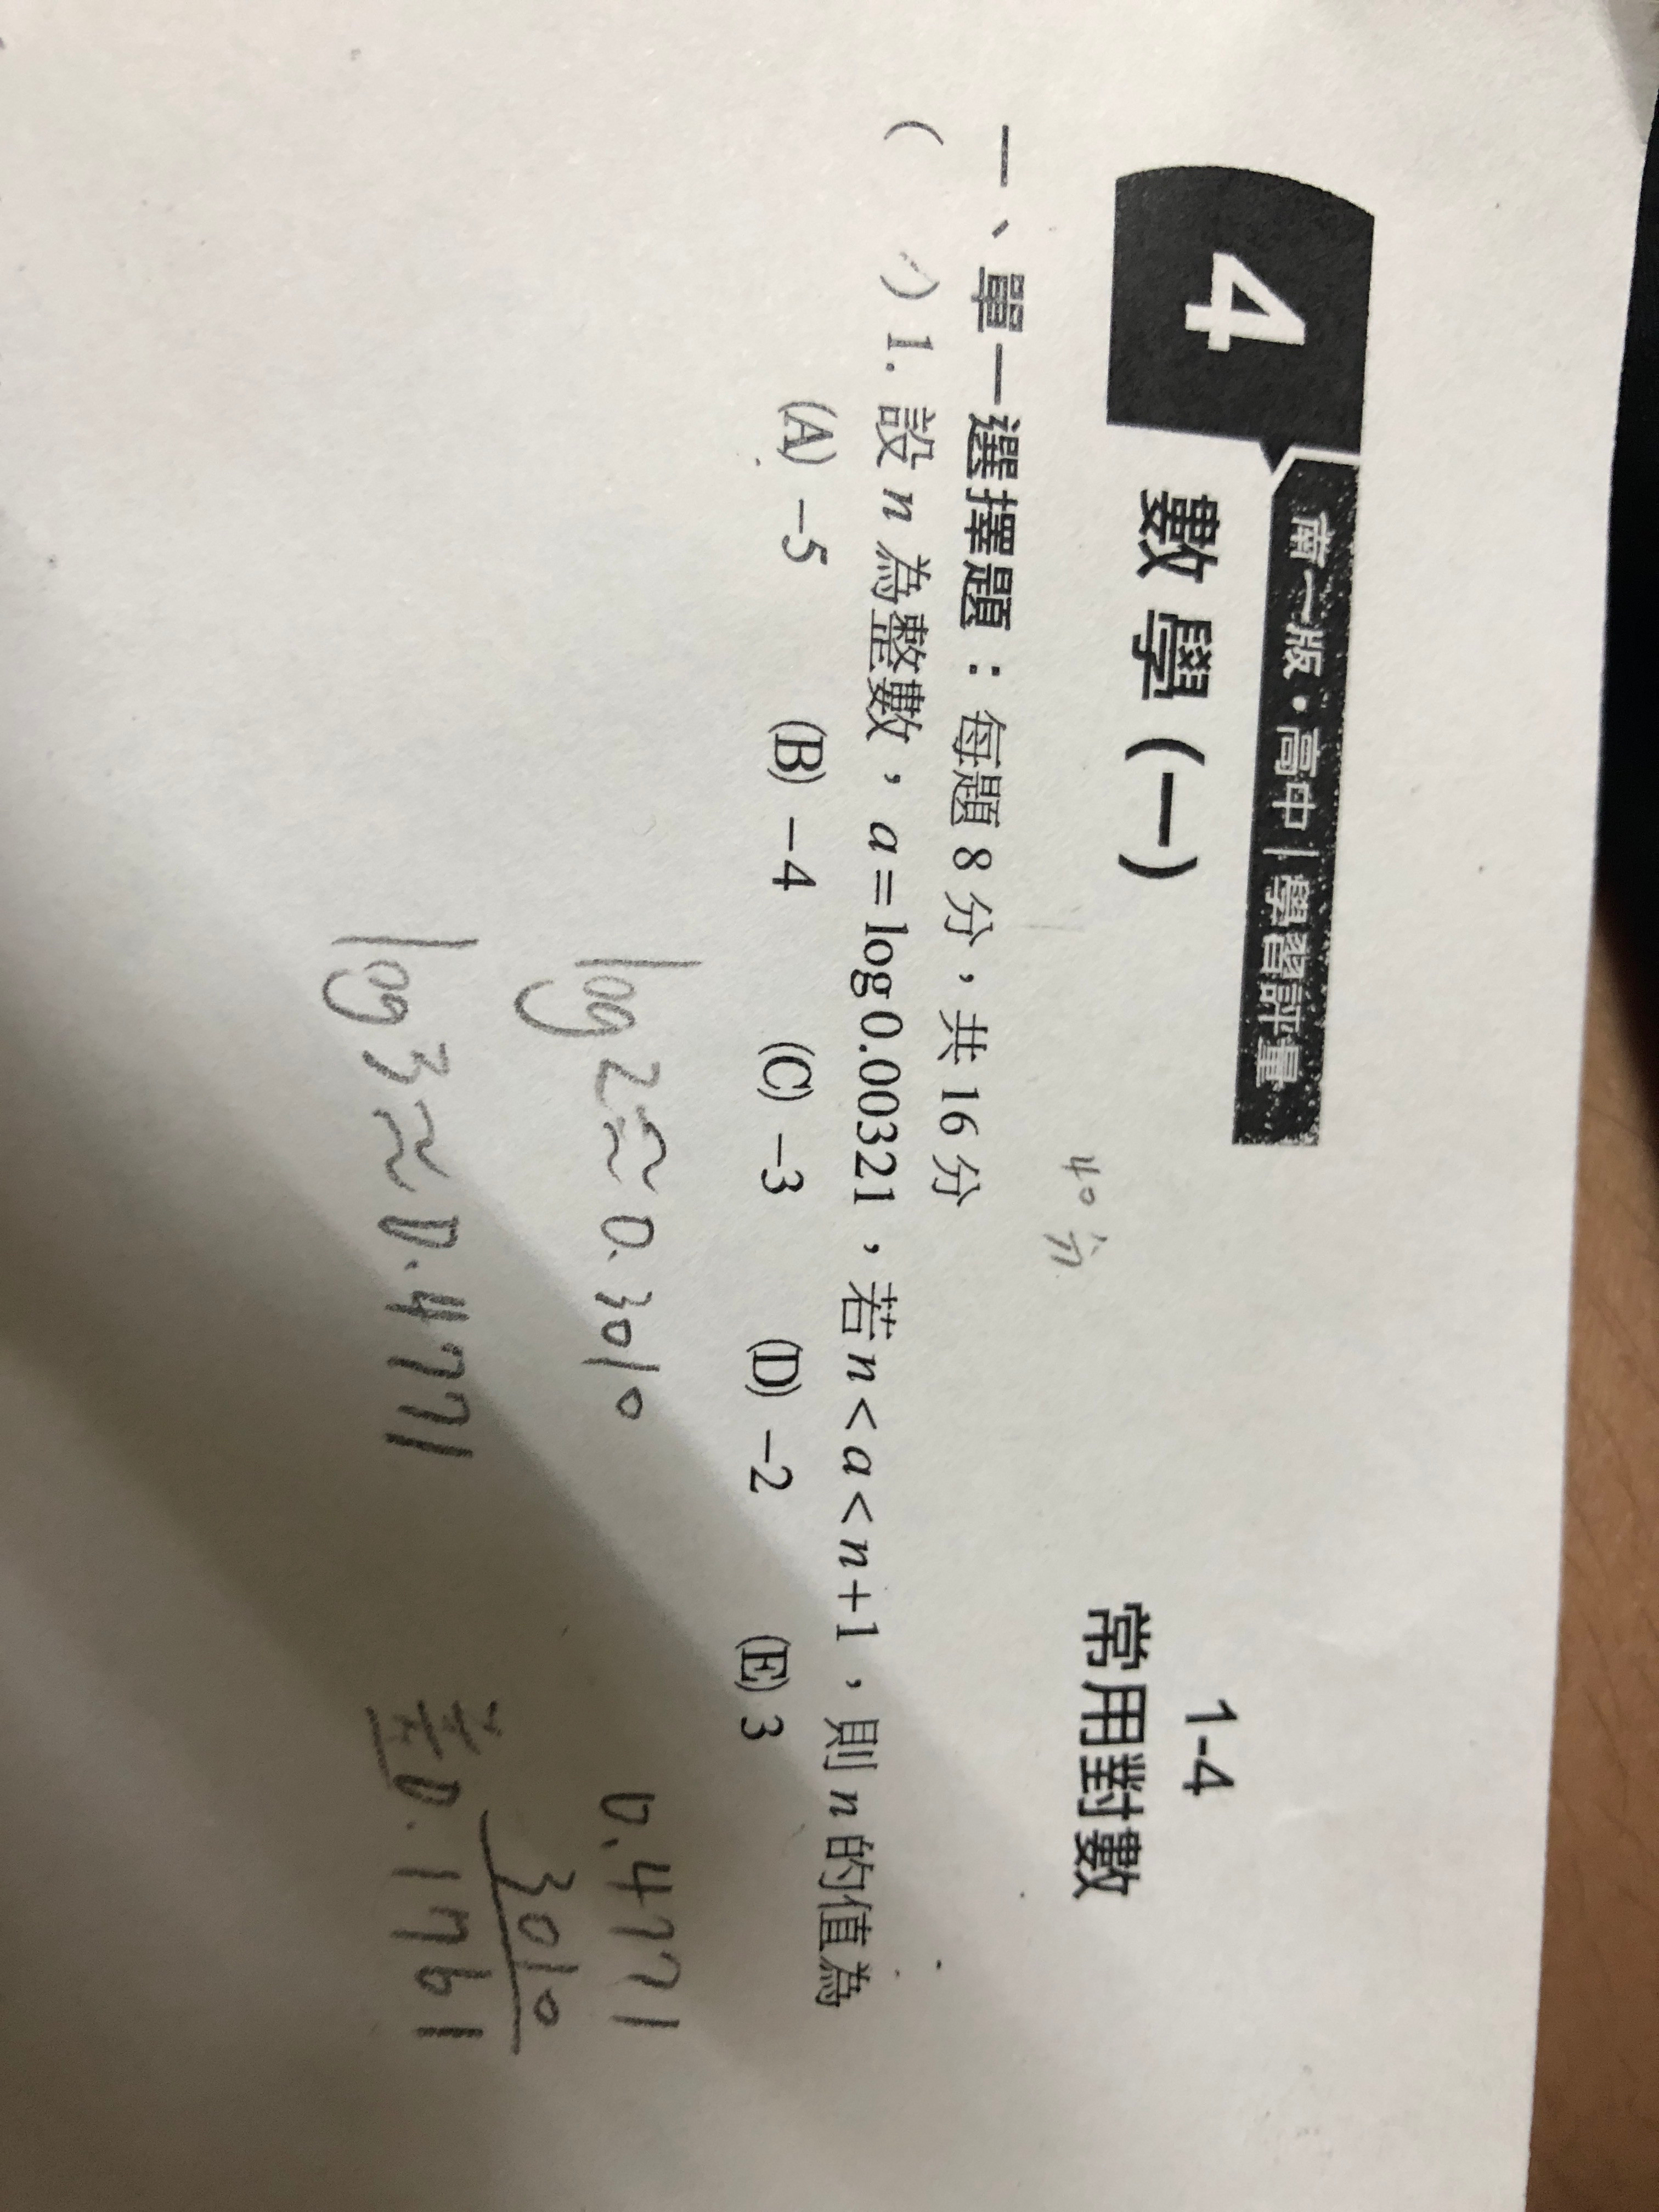 4
南一版・高中|學習評量
數學(一)
1-4
常用對數
40分
一、單一選擇題：每題8分，共16分
(  ) 1. 設 n 為整數，a = log0.00321，若 n < a < n+1，則 n 的值為
(A) -5 (B) -4 (C) -3 (D) -2 (E) 3
log2≈0.3010
log3≈0.4771
0.4771
3010
差0.1761